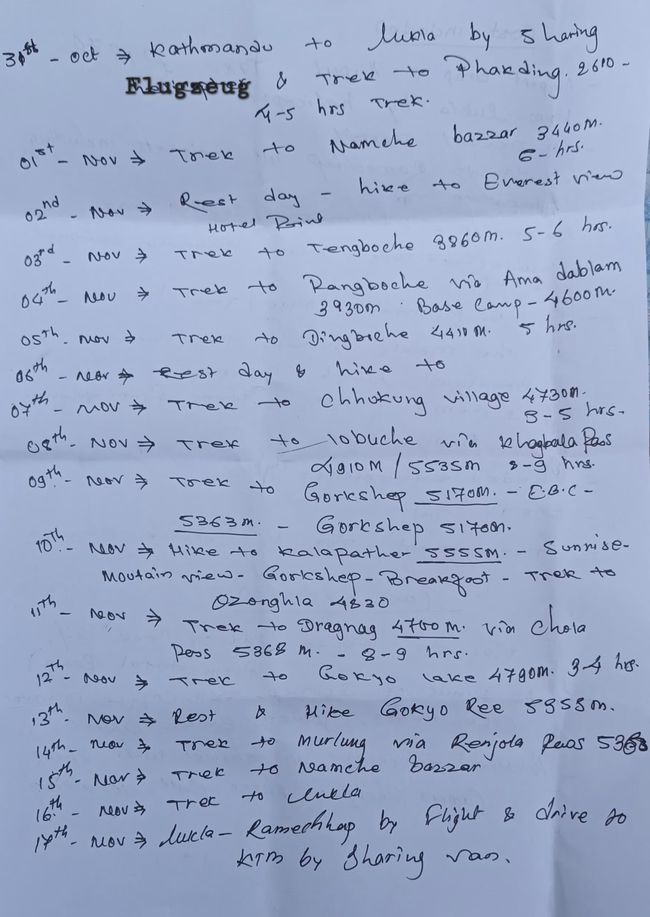 31st - Oct ⇒ Kathmandu to Lukla by Sharing
Flugzeug & Trek to Phakding. 2610 -
4-5 hrs Trek.
01st - Nov ⇒ Trek to Namche bazzar 3440m.
6 - hrs.
02nd - Nov ⇒ Rest day - hike to Everest view
Hotel Point
03rd - Nov ⇒ Trek to Tengboche 3860m. 5-6 hrs.
04th - Nov ⇒ Trek to Pangboche via Ama dablam
3930m. Base Camp - 4600m.
05th - Nov ⇒ Trek to Dingboche 4410m. 5 hrs.
06th - Nov ⇒ Rest day & hike to
07th - Nov ⇒ Trek to Chhukung village 4730m.
3-5 hrs-
08th - Nov ⇒ Trek to lobuche via Khogbala Pass
4910M / 5535m 8-9 hrs.
09th - Nov ⇒ Trek to Gorkshep 5170m. - E.B.C -
5363m. - Gorkshep 5170m.
10th - Nov ⇒ Hike to Kalapather 5555m. - Sunrise-
Moutain view - Gorkshep - Breakfast - Trek to
Dzonghla 4830
11th - Nov ⇒ Trek to Dragnag 4700m. via Chola
Pass 5368 m. - 8-9 hrs.
12th - Nov ⇒ Trek to Gokyo lake 4790m. 3-4 hrs.
13th - Nov ⇒ Rest & Hike Gokyo Ree 5355m.
14th - Nov ⇒ Trek to Murlung via Renjola Pass
15th - Nov ⇒ Trek to Namche bazzar
16th - Nov ⇒ Trek to Lukla
17th - Nov ⇒ Lukla - Ramechhap by Flight & drive to
KTM by Sharing van.